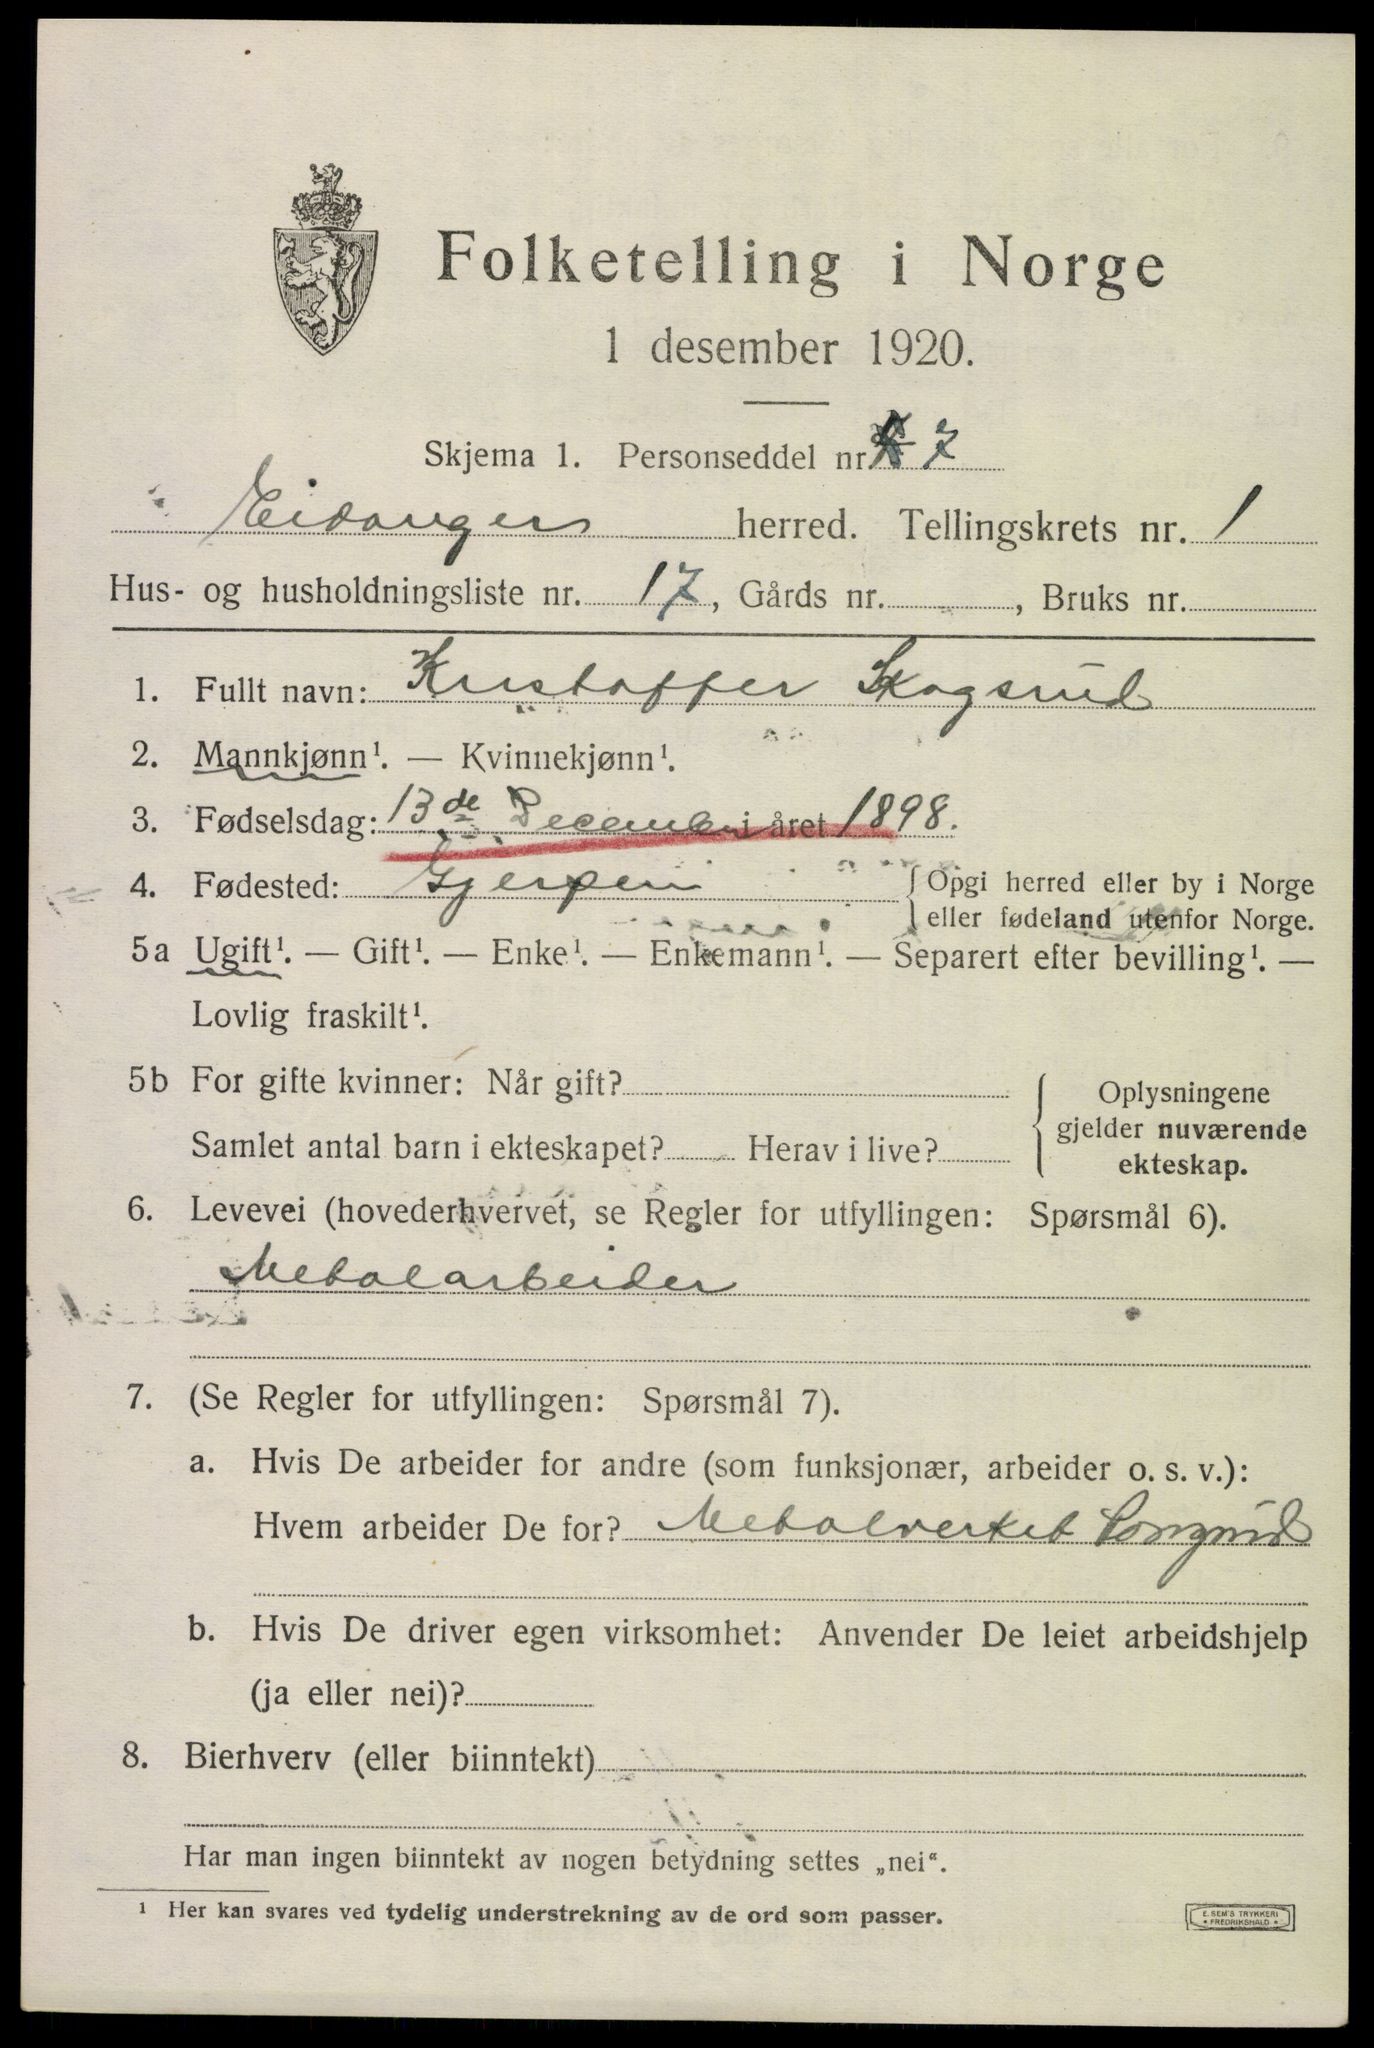 Folketelling i Norge
1 desember 1920.
Skjema 1. Personseddel nr. 7
Eidanger herred. Tellingskrets nr. 1
Hus- og husholdningsliste nr. 17, Gårds nr. , Bruks nr.
1. Fullt navn: Kristoffer Skogsrud
2. Mannkjønn¹. — Kvinnekjønn¹.
3. Fødselsdag: 13de December i året 1898.
4. Fødested: Gjerpen { Opgi herred eller by i Norge
eller fødeland utenfor Norge.
5a Ugift¹. — Gift¹. — Enke¹. — Enkemann¹. — Separert efter bevilling¹. —
Lovlig fraskilt¹.
5b For gifte kvinner: Når gift? { Oplysningene
gjelder nuværende
ekteskap.
Samlet antal barn i ekteskapet? Herav i live?
6. Levevei (hovederhvervet, se Regler for utfyllingen: Spørsmål 6).
Metalarbeider
7. (Se Regler for utfyllingen: Spørsmål 7).
a. Hvis De arbeider for andre (som funksjonær, arbeider o. s. v.):
Hvem arbeider De for? Metalverket
b. Hvis De driver egen virksomhet: Anvender De leiet arbeidshjelp
(ja eller nei)?
8. Bierhverv (eller biinntekt)
Har man ingen biinntekt av nogen betydning settes „nei“.
¹ Her kan svares ved tydelig understrekning av de ord som passer.
E. SEM'S TRYKKERI
* FREDRIKSHALD *